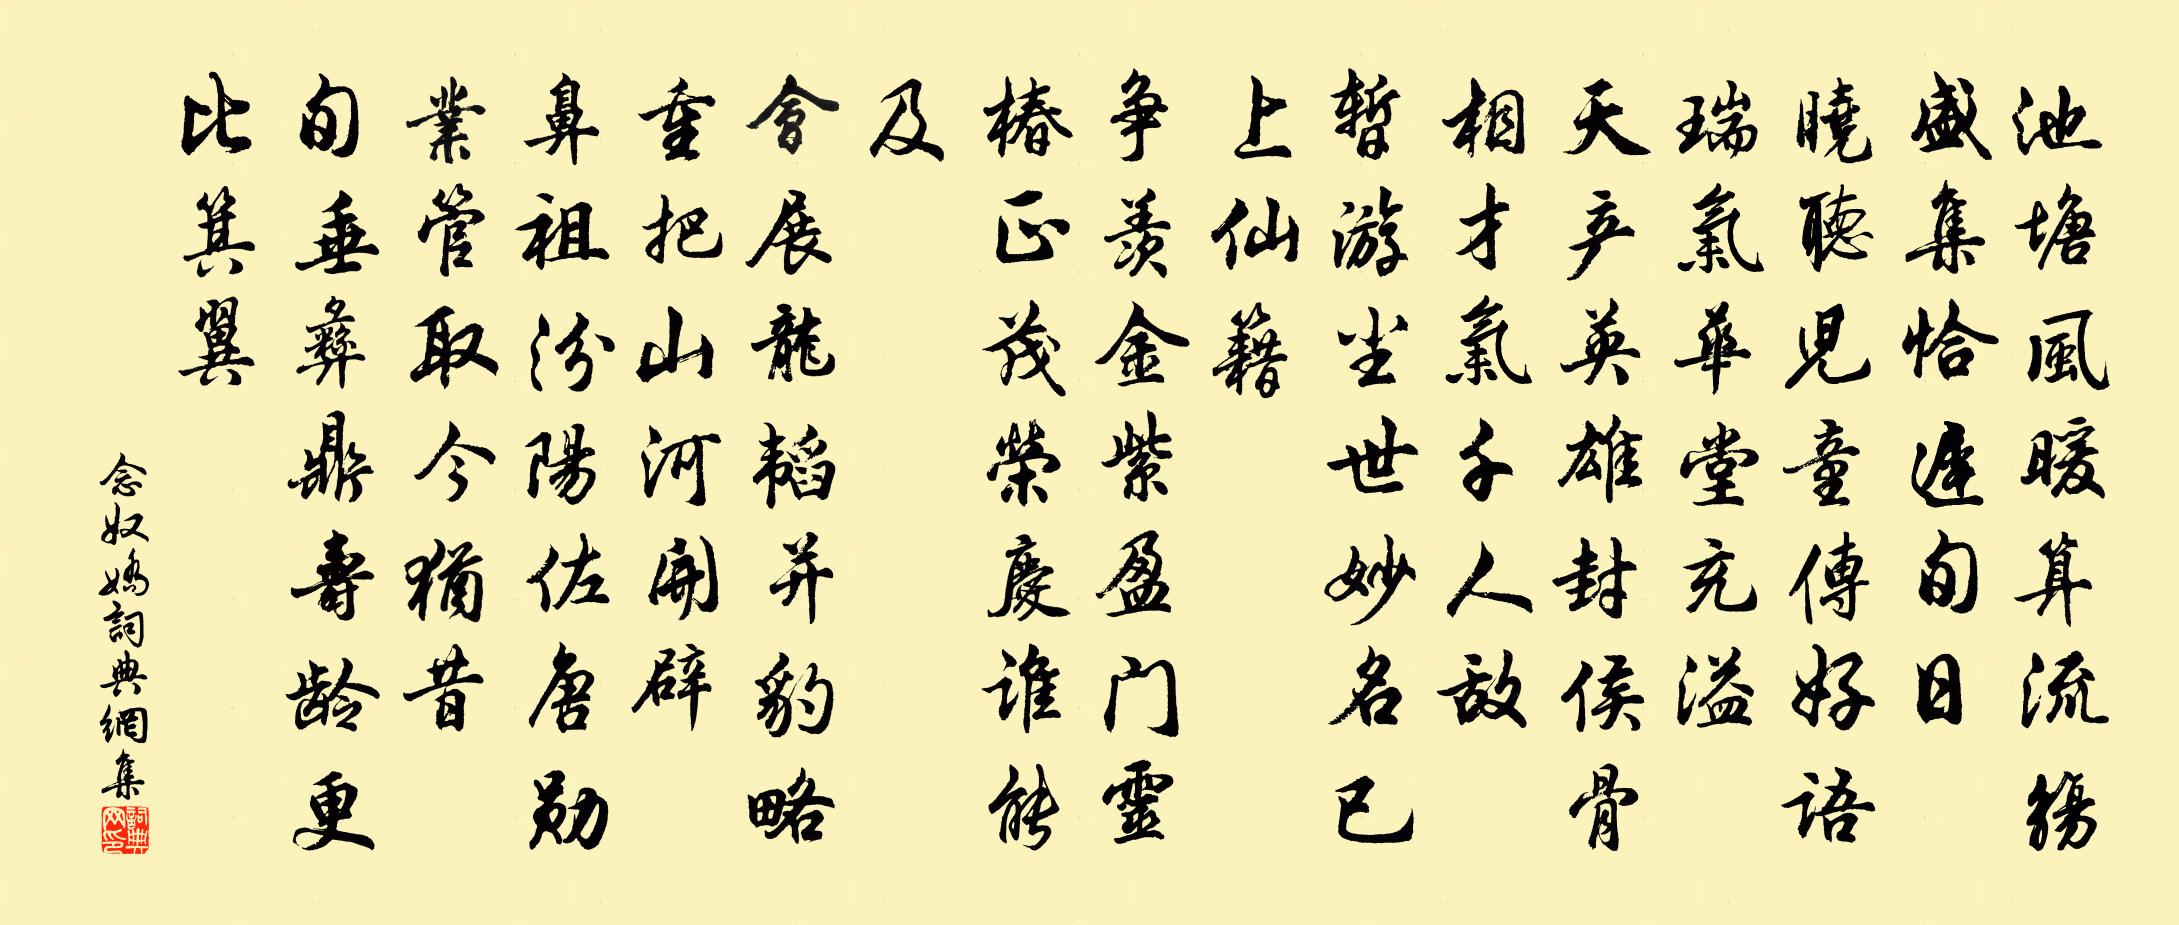 池塘風暖算流觴
盛集恰遲旬日
曉聽兒童傳好語
瑞氣華堂充溢
天产英雄封侯骨
相才氣千人敵
暫游尘世妙名已
上仙籍
争羨金紫盈门靈
椿正茂榮慶谁能
及
會展龍韬并豹略
重把山河開辟
鼻祖汾陽佐唐勋
業管取今猶昔
旬垂彝鼎壽龄更
比箕翼
念奴嬌詞典網集
詞典網印